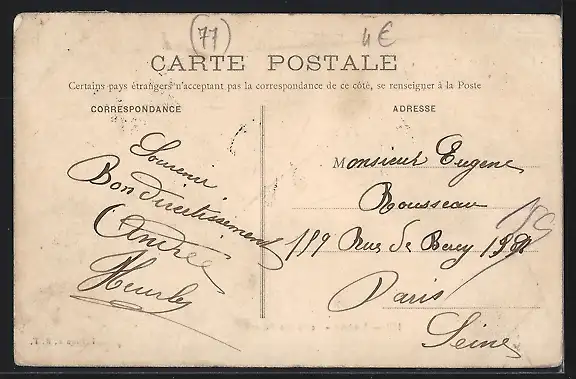 (77)
4€
CARTE POSTALE
Certains pays étrangers n'acceptent pas la correspondance de ce côté, se renseigner à la Poste
CORRESPONDANCE
Souvenir
Bon divertissement
Andrée
ADRESSE
Monsieur Eugene
Rousseau
189 Rue de Bercy 189
Paris
Seine